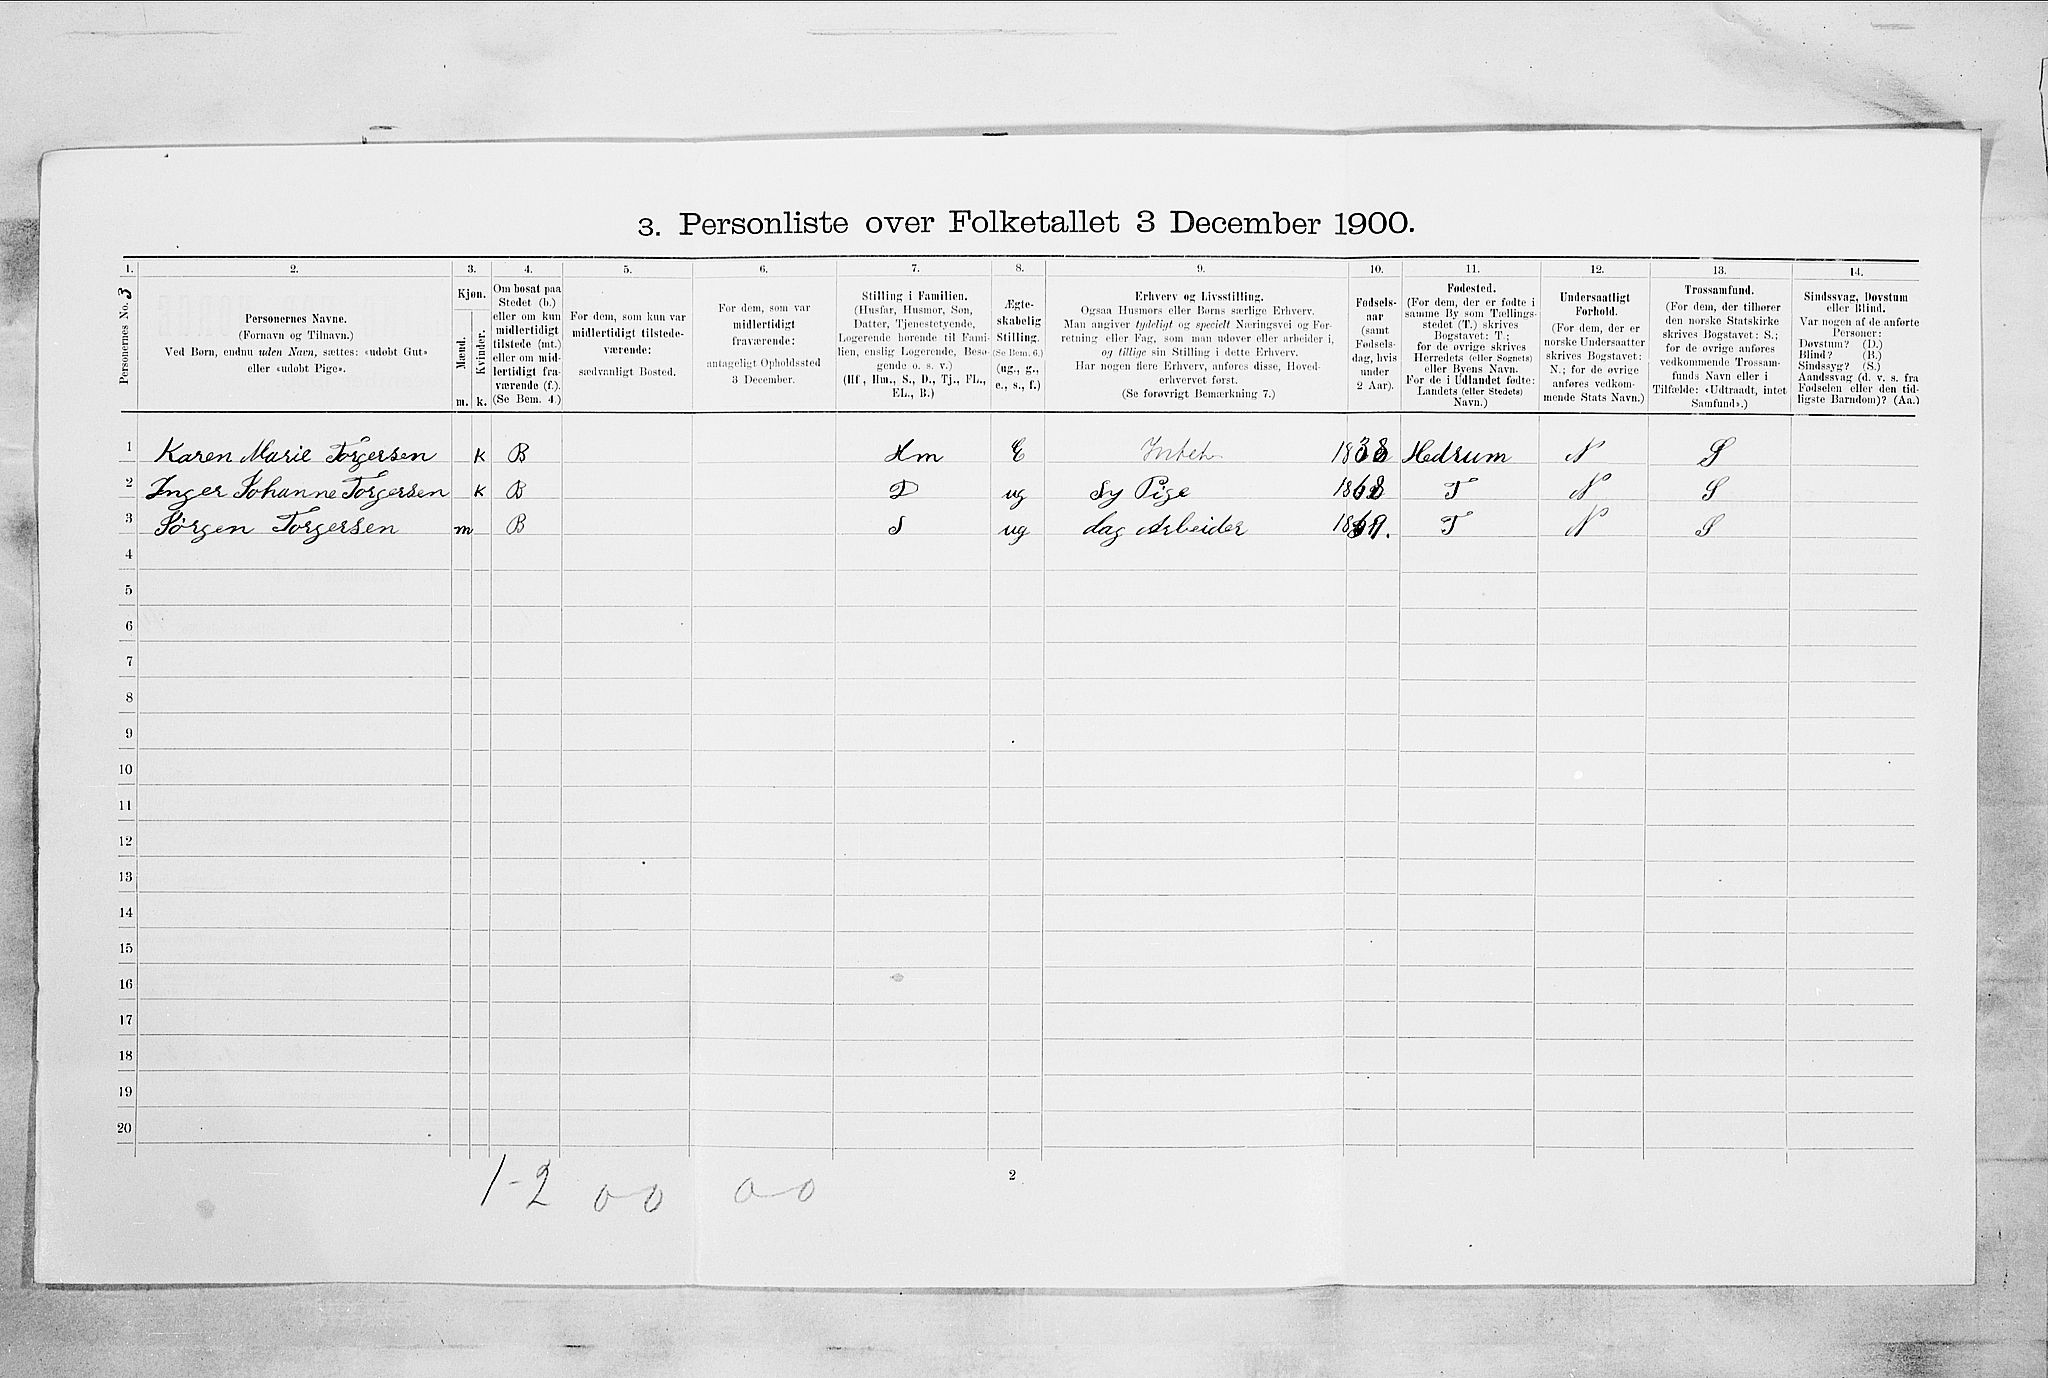 3. Personliste over Folketallet 3 December 1900.
1. 2. 3. 4. 5. 6. 7. 8. 9. 10. 11. 12. 13. 14.
Personernes No. 3
Personernes Navne.
(Fornavn og Tilnavn.)
Ved Børn, endnu uden Navn, sættes: «udøbt Gut»
eller «udøbt Pige».
Kjøn.
Mænd.
Kvinder.
m. k.
Om bosat paa
Stedet (b.)
eller om kun
midlertidigt
tilstede (mt.)
eller om mid-
lertidigt fra-
værende (f.).
(Se Bem. 4.)
For dem, som kun var
midlertidigt tilstede-
værende:
sædvanligt Bosted.
For dem, som var
midlertidigt
fraværende:
antageligt Opholdssted
3 December.
Stilling i Familien.
(Husfar, Husmor, Søn,
Datter, Tjenestetyende,
Logerende hørende til Fami-
lien, enslig Logerende, Besø-
gende o. s. v.)
(Hf., Hm., S., D., Tj., FL.,
EL., B.)
Ægte-
skabelig
Stilling.
(Se Bem. 6.)
(ug., g.,
e., s., f.)
Erhverv og Livsstilling.
Ogsaa Husmors eller Børns særlige Erhverv.
Man angiver tydeligt og specielt Næringsvei og For-
retning eller Fag, som man udøver eller arbeider i,
og tillige sin Stilling i dette Erhverv.
Har nogen flere Erhverv, anføres disse, Hoved-
erhvervet først.
(Se forøvrigt Bemærkning 7.)
Fødsels-
aar
(samt
Fødsels-
dag, hvis
under
2 Aar).
Fødested.
(For dem, der er fødte i
samme By som Tællings-
stedet (T.) skrives
Bogstavet: T;
for de øvrige skrives
Herredets (eller Sognets)
eller Byens Navn.
For de i Udlandet fødte:
Landets (eller Stedets)
Navn.)
Undersaatligt
Forhold.
(For dem, der er
norske Undersaatter
skrives Bogstavet:
N.; for de øvrige
anføres vedkom-
mende Stats Navn.)
Trossamfund.
(For dem, der tilhører
den norske Statskirke
skrives Bogstavet: S.;
for de øvrige anføres
vedkommende Trossam-
funds Navn eller i
Tilfælde: «Udtraadt, intet
Samfund».)
Sindssvag, Døvstum
eller Blind.
Var nogen af de anførte
Personer:
Døvstum? (D.)
Blind? (B.)
Sindssyg? (S.)
Aandssvag (d. v. s. fra
Fødselen eller den tid-
ligste Barndom)? (Aa.)
1 Karen Marie Torgersen k B Hm E Intet 1838 Hedrum N S
2 Inger Johanne Torgersen k B D ug Sy Pige T N S
3 Jørgen Torgersen m B S ug dag Arbeider T N S
4
5
6
7
8
9
10
11
12
13
14
15
16
17
18
19
20
1-2 0-0 0-0
2